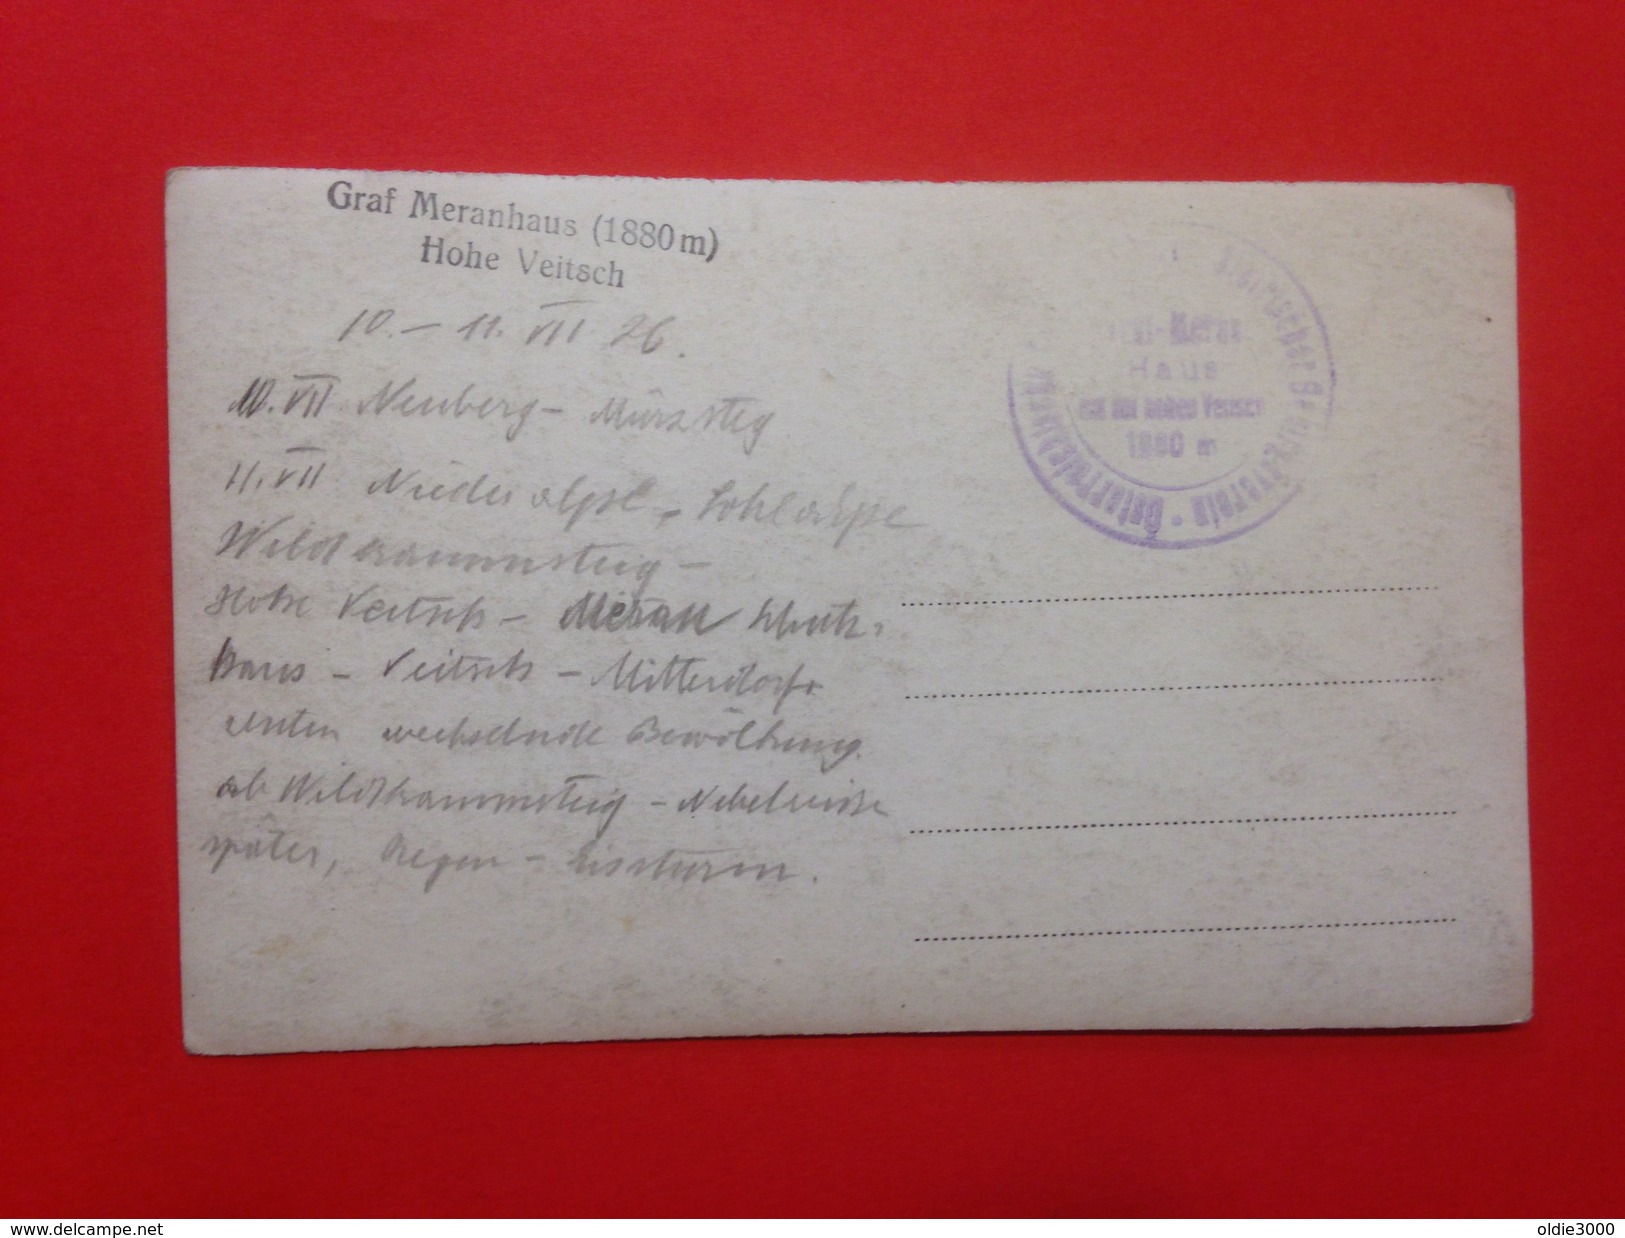 Graf Meranhaus (1880m)
Hohe Veitsch
10.-11. VII 26.
10. VII Neuberg - Mürzsteg
11. VII Niederalpl - Sohlalpe
Wildkammsteig -
Hohe Veitsch - Meran Schutz-
haus - Veitsch - Mitterdorf
unten wechselnde Bewölkung.
ab Wildkammsteig - Nebelreise
später, Regen - Eissturm.
Graf-Meran
Haus
auf der hohen Veitsch
1880 m
Steirischer Gebirgsverein · Österreichischer
www.delcampe.net
oldie3000